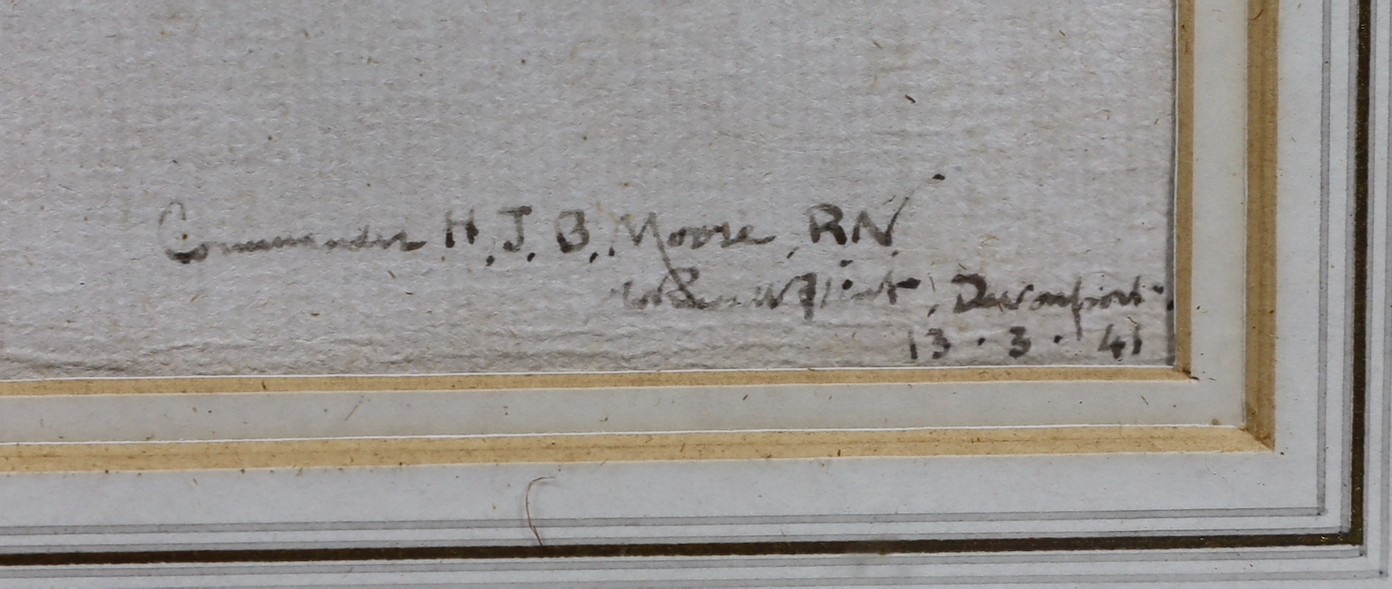 Commander H. J. B. Moore, RN
Devonport.
13 . 3 . 41